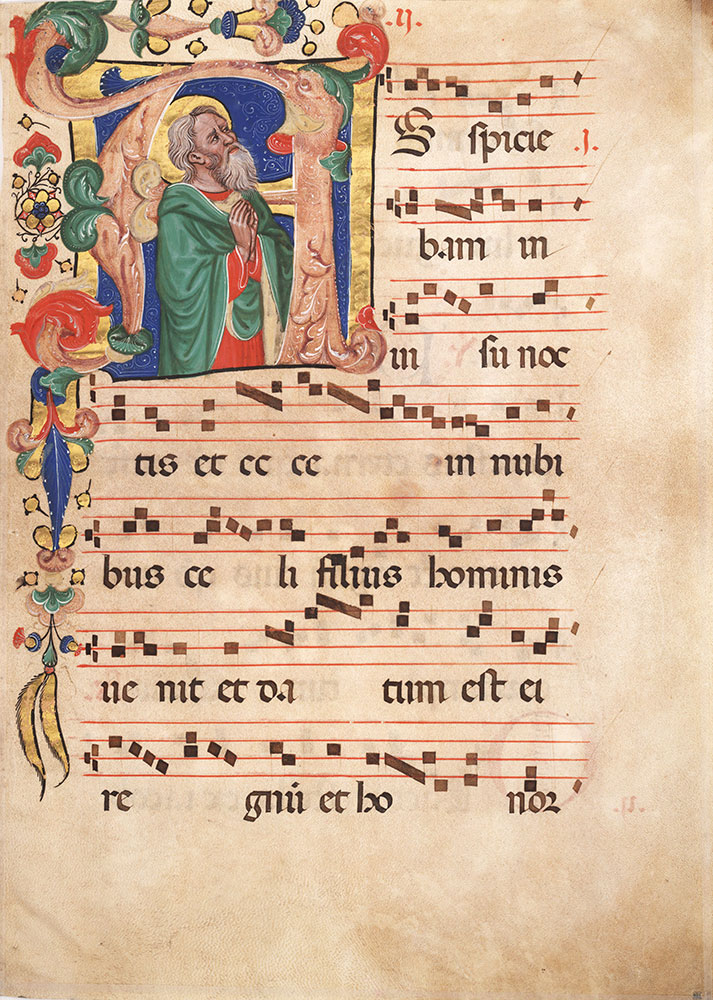 .ij.
A
S spicie .j.
bam in
in su noc
tis et ec ce in nubi
bus ce li filius hominis
ue nit et da tum est ei
re gnū et ho nor